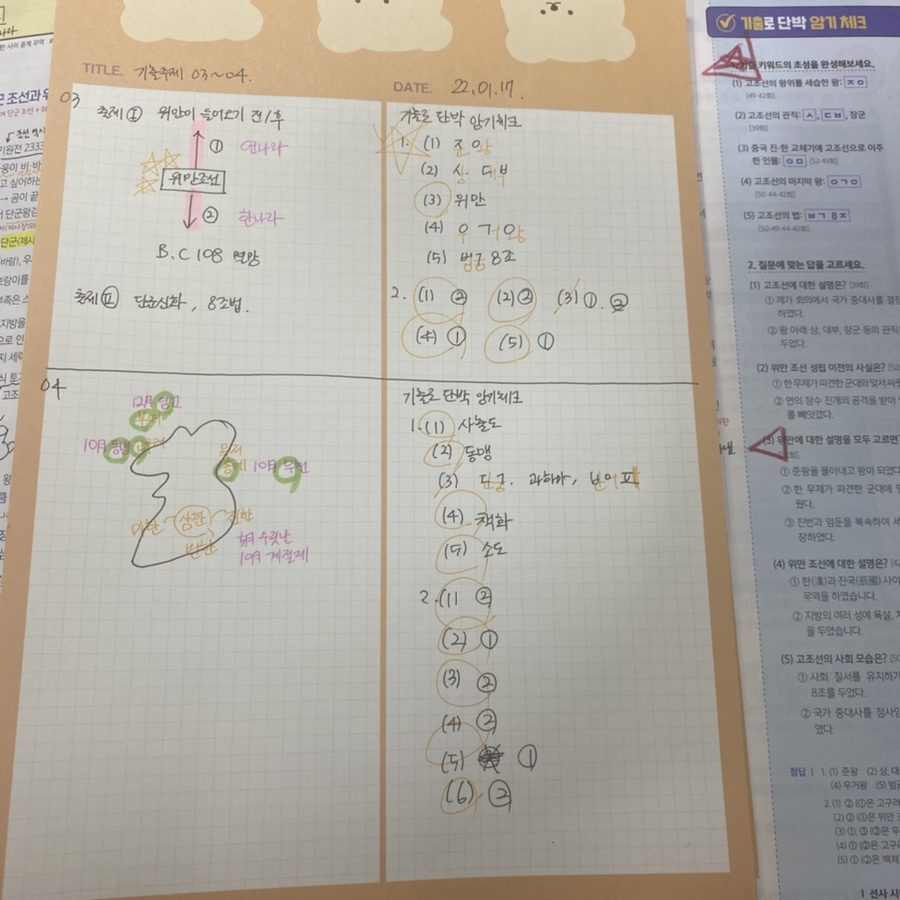 TITLE. 기출주제 03~04.
DATE. 22.01.17.
03
출제 Ⅰ 위만이 들어오기 전/후
① 연나라
위만조선
② 한나라
B.C 108 멸망
출제 Ⅱ 단군신화, 8조법.
기출로 단박 암기체크
1. (1) 준왕
(2) 상, 대부
(3) 위만
(4) 우거왕
(5) 범금 8조
2. (1) ② (2) ② (3) ①.
(4) ① (5) ①
04
12月 영고
부여
10月 동맹 고구려
옥저
동예 10月 무천
마한 삼한 진한
변한
5月 수릿날
10月 계절제
기출로 단박 암기체크
1. (1) 사출도
(2) 동맹
(3) 단궁, 과하마, 반어피
(4) 책화
(5) 소도
2. (1) ②
(2) ①
(3) ②
(4) ②
(5) ①
(6) ②
기출로 단박 암기 체크
키워드의 초성을 완성해보세요.
(1) 고조선의 왕위를 세습한 왕: ㅈㅇ
[49·42회]
(2) 고조선의 관직: ㅅ, ㄷㅂ, 장군
[39회]
(3) 중국 진·한 교체기에 고조선으로 이주
한 인물: ㅇㅁ [52·49회]
(4) 고조선의 마지막 왕: ㅇㄱㅇ
[50·44·42회]
(5) 고조선의 법: ㅂㄱ 8ㅈ
[50·49·44·42회]
2. 질문에 맞는 답을 고르세요.
(1) 고조선에 대한 설명은? [39회]
① 제가 회의에서 국가 중대사를 결정
하였다.
② 왕 아래 상, 대부, 장군 등의 관직
두었다.
(2) 위만 조선 성립 이전의 사실은?
① 한 무제가 파견한 군대와 맞서 싸
② 연의 장수 진개의 공격을 받아
를 빼앗겼다.
(3) 위만에 대한 설명을 모두 고르면?
① 준왕을 몰아내고 왕이 되었다
② 한 무제가 파견한 군대에
웠다.
③ 진번과 임둔을 복속하여 세
장하였다.
(4) 위만 조선에 대한 설명은?
① 한(漢)과 진국(辰國) 사이
무역을 하였습니다.
② 지방의 여러 성에 욕살, 처
을 두었습니다.
(5) 고조선의 사회 모습은?
① 사회 질서를 유지하기
8조를 두었다.
② 국가 중대사를 정사암
였다.
정답 | 1. (1) 준왕 (2) 상, 대
(4) 우거왕 (5) 범금
2. (1) ② (①은 고구려
(2) ② (①은 위만 조
(3) ①, ③ (②은 우
(4) ① (②은 고구
(5) ① (②은 백제
1 선사 시